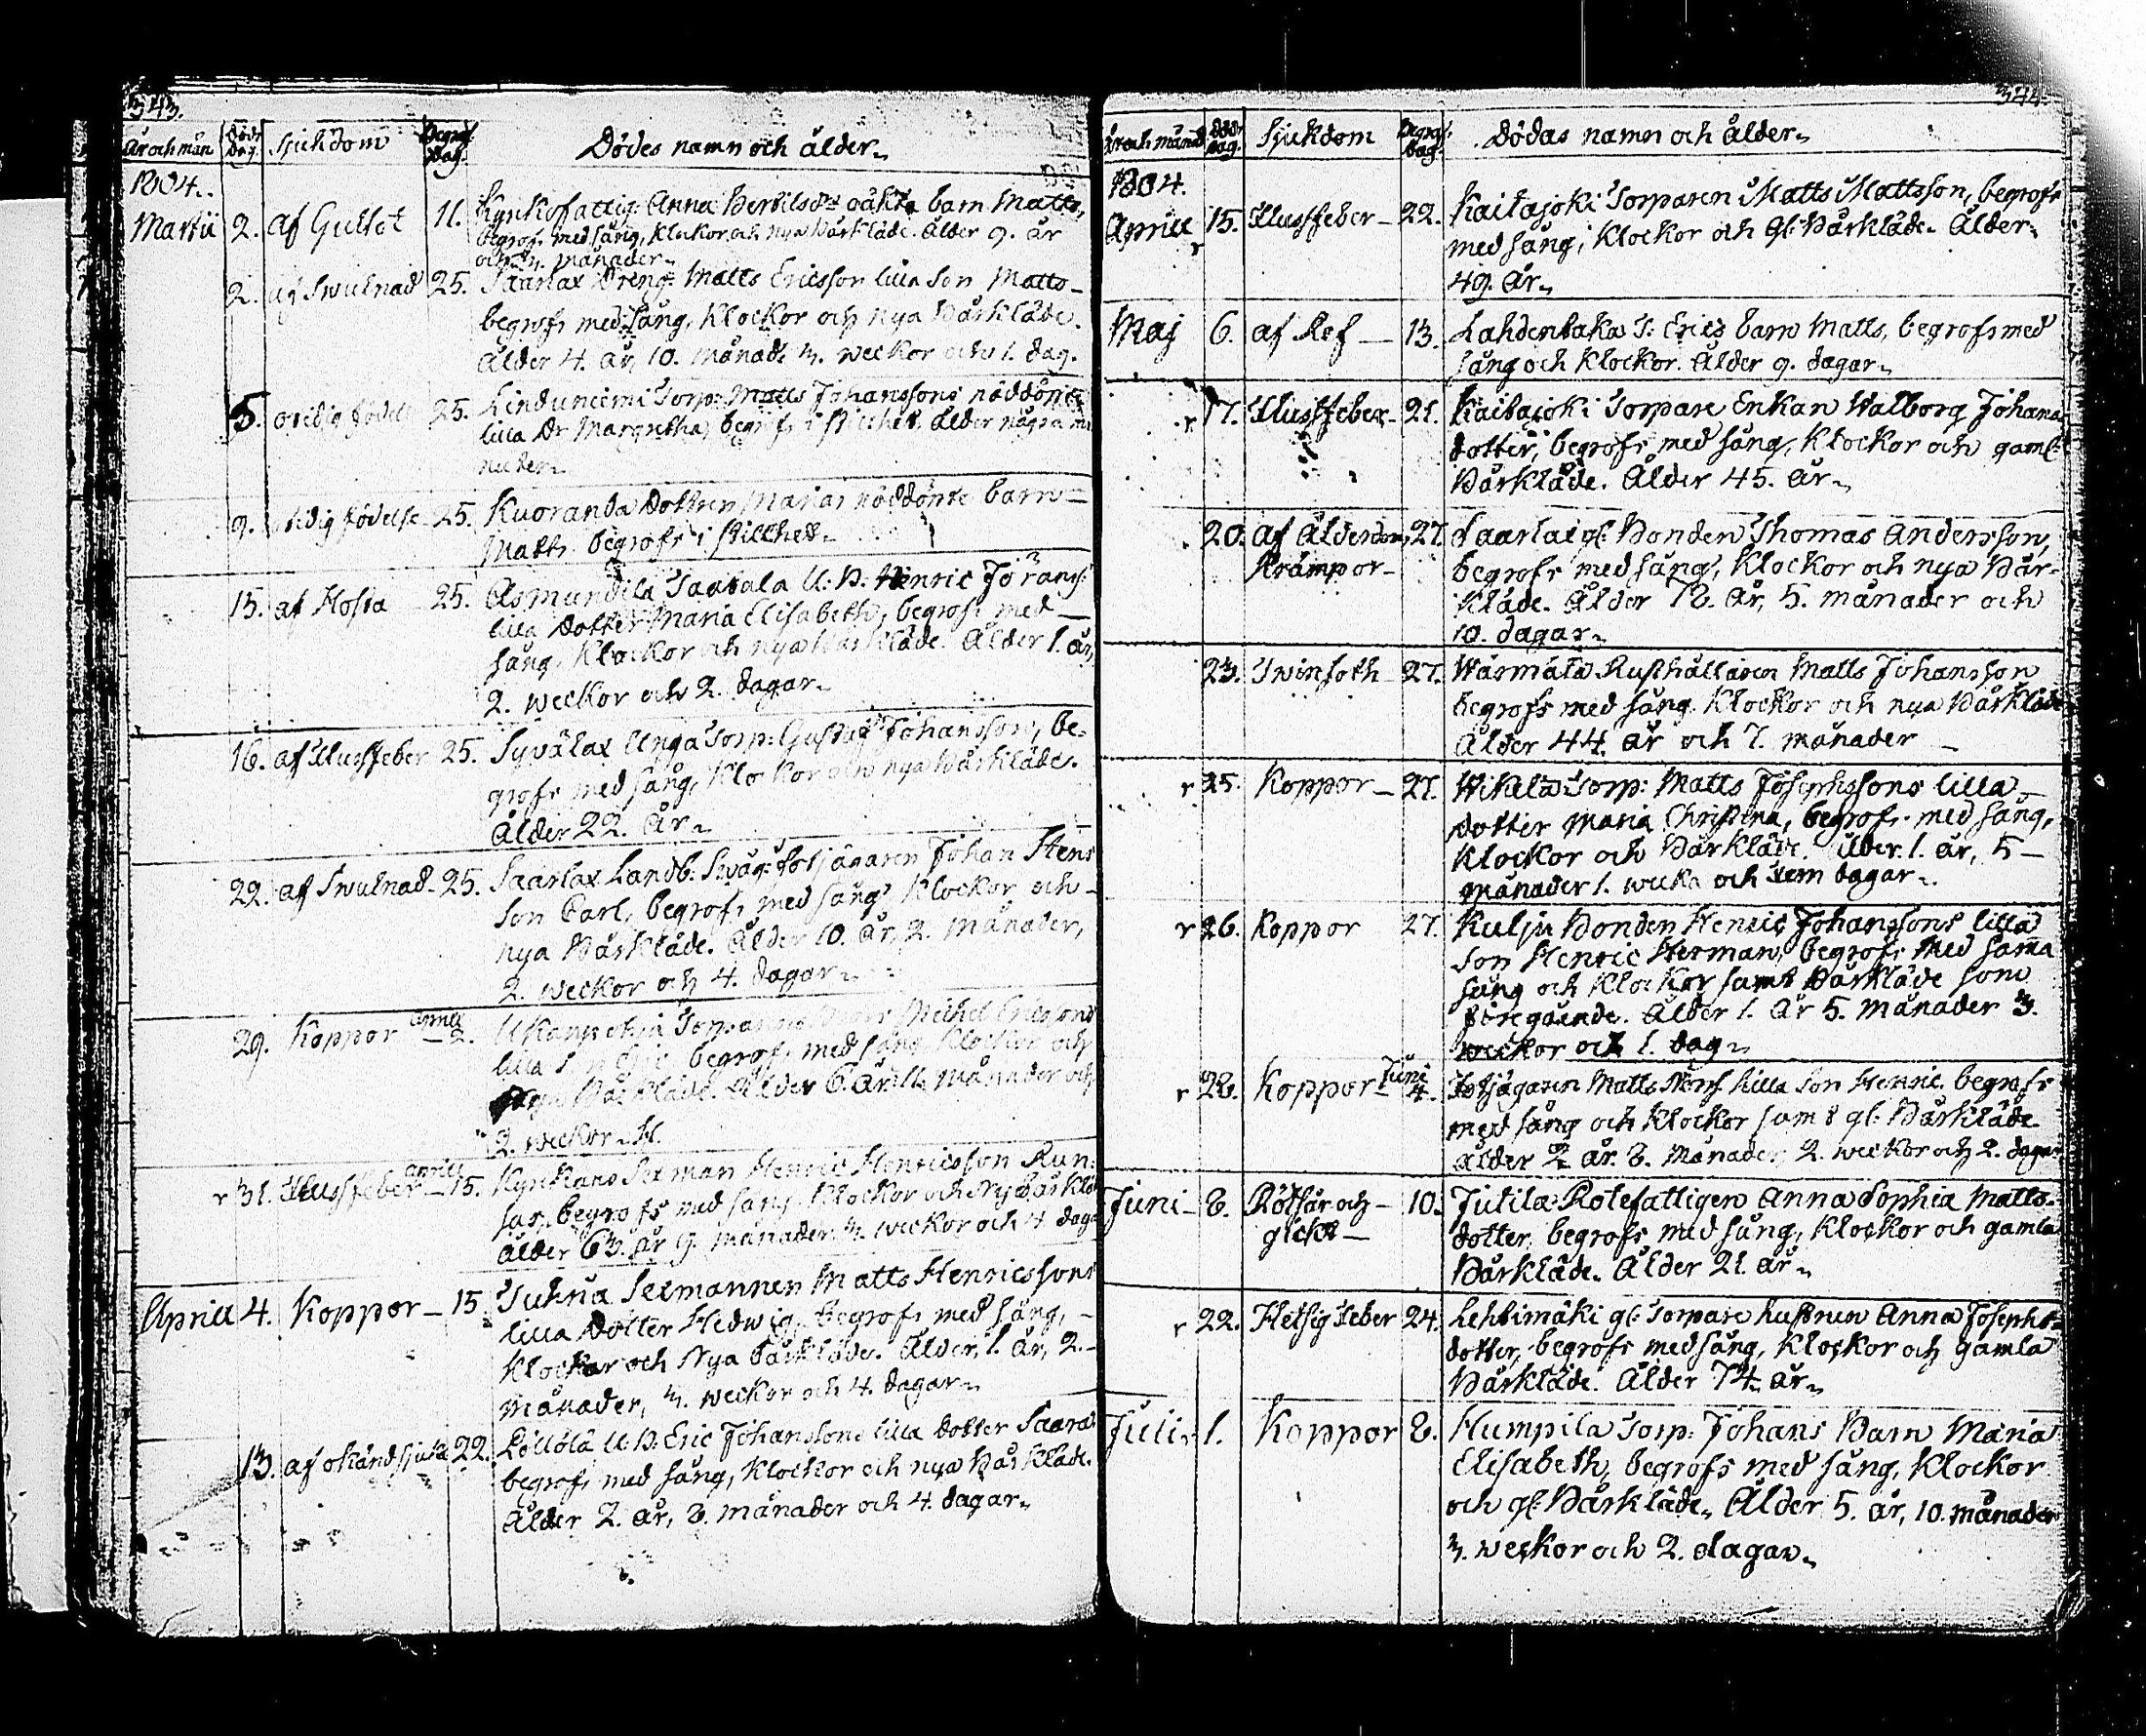 343.
År och mån Döds Dag. Sjukdom Begrof: Dag. Dödes namn och ålder.
1804.
Martii 2. af Gulsot 11. Kyrkofattig: Anna Bertilsdr oäkta barn Matts,
begrofs med sång, klockor och nya Bårkläde. Ålder 9. år
och månader.
2. af Swulnad 25. Saarlax Dreng: Matts Ericsson lilla Son Matts
begrofs med sång, Klockor och nya Bårkläde.
Ålder 4. år, 10. månad: 3. weckor och 1. dag.
5. otidig födels 25. Linduniemi Torp: Matts Johanssons nöddönte
lilla Dr Margretha, begrofs i stillhet, ålder några mi
nuter.
9. otidig födelse 25. Kuoranda Dottren Marias nöddönte barn
Matts begrofs i stillhet.
15. af Hosta 25. Asmundila Saatala U: B: Henric Jörans
lilla Dotter Maria Elisabeth, begrofs med
sång, Klockor och nya Bårkläde. Ålder 1. år,
2. weckor och 2. dagar.
16. af Flussfeber 25. Syvälax Unga Torp: Gustaf Johansson, be-
grofs med sång, Klockor och nya Bårkläde.
Ålder 22. År.
22. af Swulnad 25. Saarlax Landb: Swåg: fotjägaren Johan Stens
Son Carl, begrofs med sång Klockor och
nya Bårkläde. Ålder 10. år, 2. månader,
2. weckor och 4. dagar.
29. Koppor aprill 2. Michel Ericssons
lilla begrofs med sång Klockor och
nya Bårkläde. Ålder 6. år månader och
2. weckor
r 31. Flussfeber aprill 15. Kyrkans Sexman Henric Henricsson Run:
sar, begrofs med sång, Klockor och Ny Bårklä
Ålder 63. år 9. månader 3. weckor och 4 daga
Aprill 4. Koppor 15. Juhna Sexmannen Matts Henricssons
lilla Dotter Hedwig, begrofs med sång,
Klockor och Nya Bårkläde. Ålder, 1. år, 2.
månader, 3. weckor och 4. dagar.
13. af okänd sjukd 22. Löllölä U: B: Eric Johanssons lilla dotter Saara
begrofs med sång, Klockor och nya Bårkläde.
Ålder 2. år, 8. månader och 4. dagar.
344.
År och månad Död: Dag. Sjukdom Begrof: Dag. Dödas namn och ålder.
1804.
Aprill r 15. Flussfeber 22. Kaitajoki Torparen Matts Mattsson, begrofs
med sång, Klockor och gl: Bårkläde. Ålder
49. år.
Maj 6. af Ref 13. Lahdentaka T: Erics barn Matts, begrofs med
sång och Klockor. Ålder 9. dagar.
r 17. Flussfeber 21. Kaitajoki Torpare Enkan Walborg Johans
dotter, begrofs med sång, Klockor och gaml:
Bårkläde. Ålder 45. år.
20. af Ålderdoms 27. Saarlax gl: Bonden Thomas Andersson,
Krämpor begrofs med sång, Klockor och nya Bår-
kläde. Ålder 78. år, 5. månader och
10. dagar.
23. Twinsoth 27. Wärmälä Rusthållaren Matts Johansson
begrofs med sång Klockor och nya Bårkläde
Ålder 44. år och 7. månader
r 25. Koppor 27. Wikila Torp: Matts Josephssons lilla
dotter Maria Christina, begrofs med sång,
Klockor och Bårkläde. Ålder 1. år, 5
månader 1. wecka och fem dagar.
r 26. Koppor 27. Kulju Bonden Henric Johanssons lilla
Son Henric Herman, begrofs Med samma
sång och Klockor samt Bårkläde som
föregående. Ålder 1. År 5. Månader 3.
weckor och 1. dag.
r 28. Koppor Juni 4. Fotjägaren Matts lilla Son Henric begrofs
med sång och Klockor samt gl: Bårkläde
Ålder 2 år. 8. Månader, 2. weckor och 2. dagar
Juni 8. Rötsår och 10. Jutila Rotefattigen Anna Sophia Matts-
gickt dotter begrofs med sång, Klockor och gamla
Bårkläde. Ålder 21. år.
r 22. Hetsig Feber 24. Lehtimäki gl: Torpare hustrun Anna Josephs-
dotter, begrofs med sång, Klockor och gamla
Bårkläde. Ålder 74. år.
Juli 1. Koppor 8. Humpila Torp: Johans Barn Maria
Elisabeth, begrofs med sång, Klockor
och gl: Bårkläde. Ålder 5. år, 10. månader
3. weckor och 2. dagar.